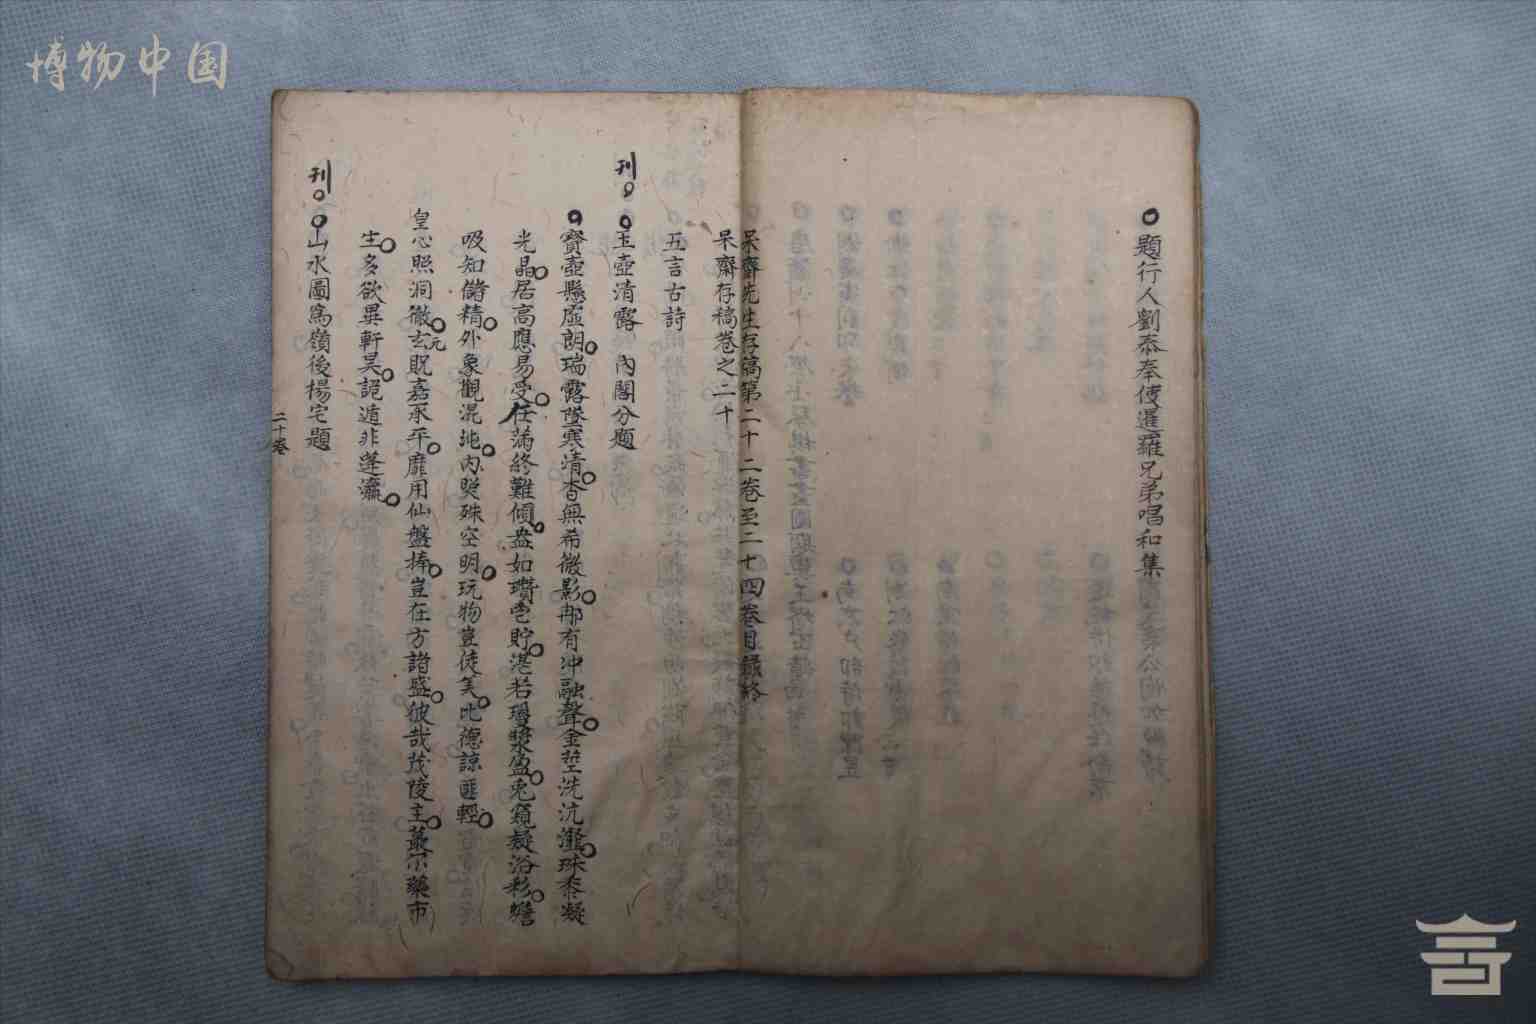 博物中国
題行人劉泰奉使暹羅兄弟唱和集
呆齋先生存稿第二十二卷至二十四卷目錄終
呆齋存稿卷之二十
五言古詩
刊 玉壺清露 內閣分題
寶壺懸虛朗瑞露墜寒清杳無希微影那有沖融聲金莖洗沆瀣珠黍凝
光晶居高應易受任滿終難傾盎如瓚鬯貯湛若瓊漿盈兔窺疑浴彩蟾
吸知儲精外象觀混沌內照殊空明玩物豈徒美比德諒匪輕
皇心照洞徹玄元貺嘉承平靡用仙盤捧豈在方諸盛彼哉茂陵主藂尔藥市
生多欲異軒昊詭遁非蓬瀛
刊 山水圖為嶺後楊宅題
二十卷